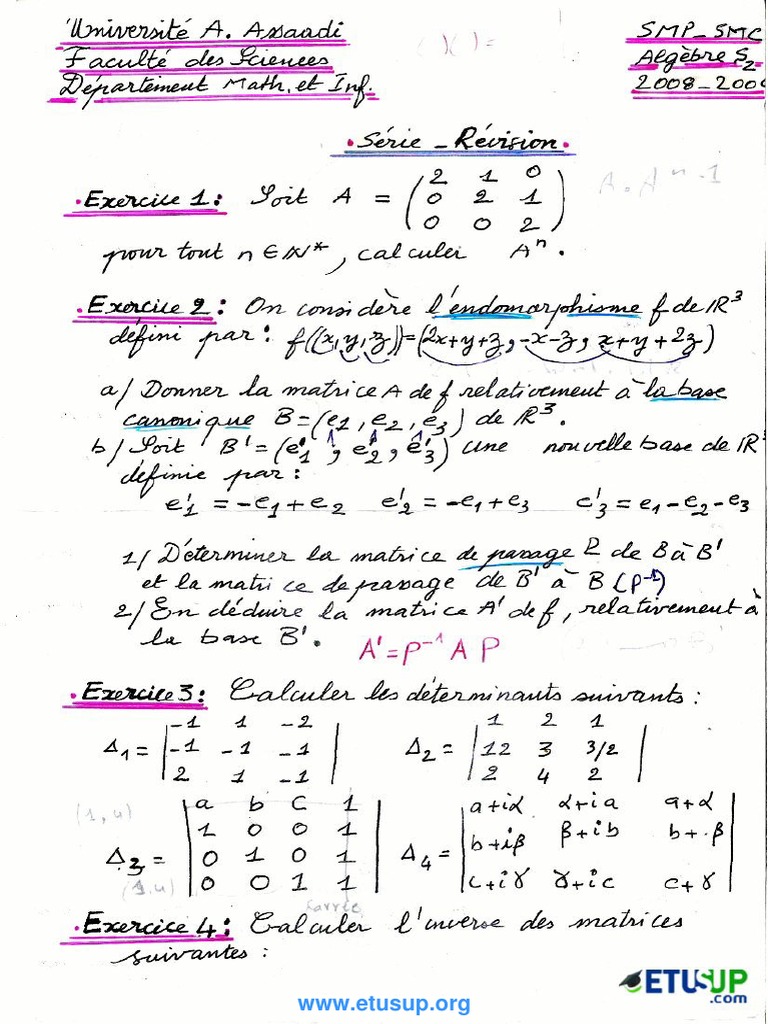 Université A. Assaadi
Faculté des Sciences
Département Math. et Inf.
SMP_SMC
Algèbre S2
2008_200
( )( ) =
. Série _ Révision .
. Exercice 1 : Soit A = ( 2 1 0
0 2 1
0 0 2 )
A . A^n-1
pour tout n ∈ IN*, calculer A^n .
. Exercice 2 : On considère l'endomorphisme f de IR^3
défini par : f((x,y,z)) = (2x+y+z, -x-z, x+y+2z)
a/ Donner la matrice A de f relativement à la base
canonique B = (e1, e2, e3) de IR^3 .
b/ Soit B' = (e'1, e'2, e'3) une nouvelle base de IR
définie par :
e'1 = -e1+e2 e'2 = -e1+e3 e'3 = e1-e2-e3
1/ Déterminer la matrice de passage P de B à B'
et la matrice de passage de B' à B (P^-1)
2/ En déduire la matrice A' de f, relativement à
la base B' . A' = P^-1 A P
. Exercice 3 : Calculer les déterminants suivants :
Δ1 = | -1 1 -2
-1 -1 -1
2 1 -1 |
Δ2 = | 1 2 1
12 3 3/2
2 4 2 |
Δ3 = | a b c 1
1 0 0 1
0 1 0 1
0 0 1 1 |
Δ4 = | a+iα α+ia a+α
b+iβ β+ib b+β
c+iγ γ+ic c+γ |
. Exercice 4 : Calculer l'inverse des matrices
suivantes :
ETUSUP
.com
www.etusup.org